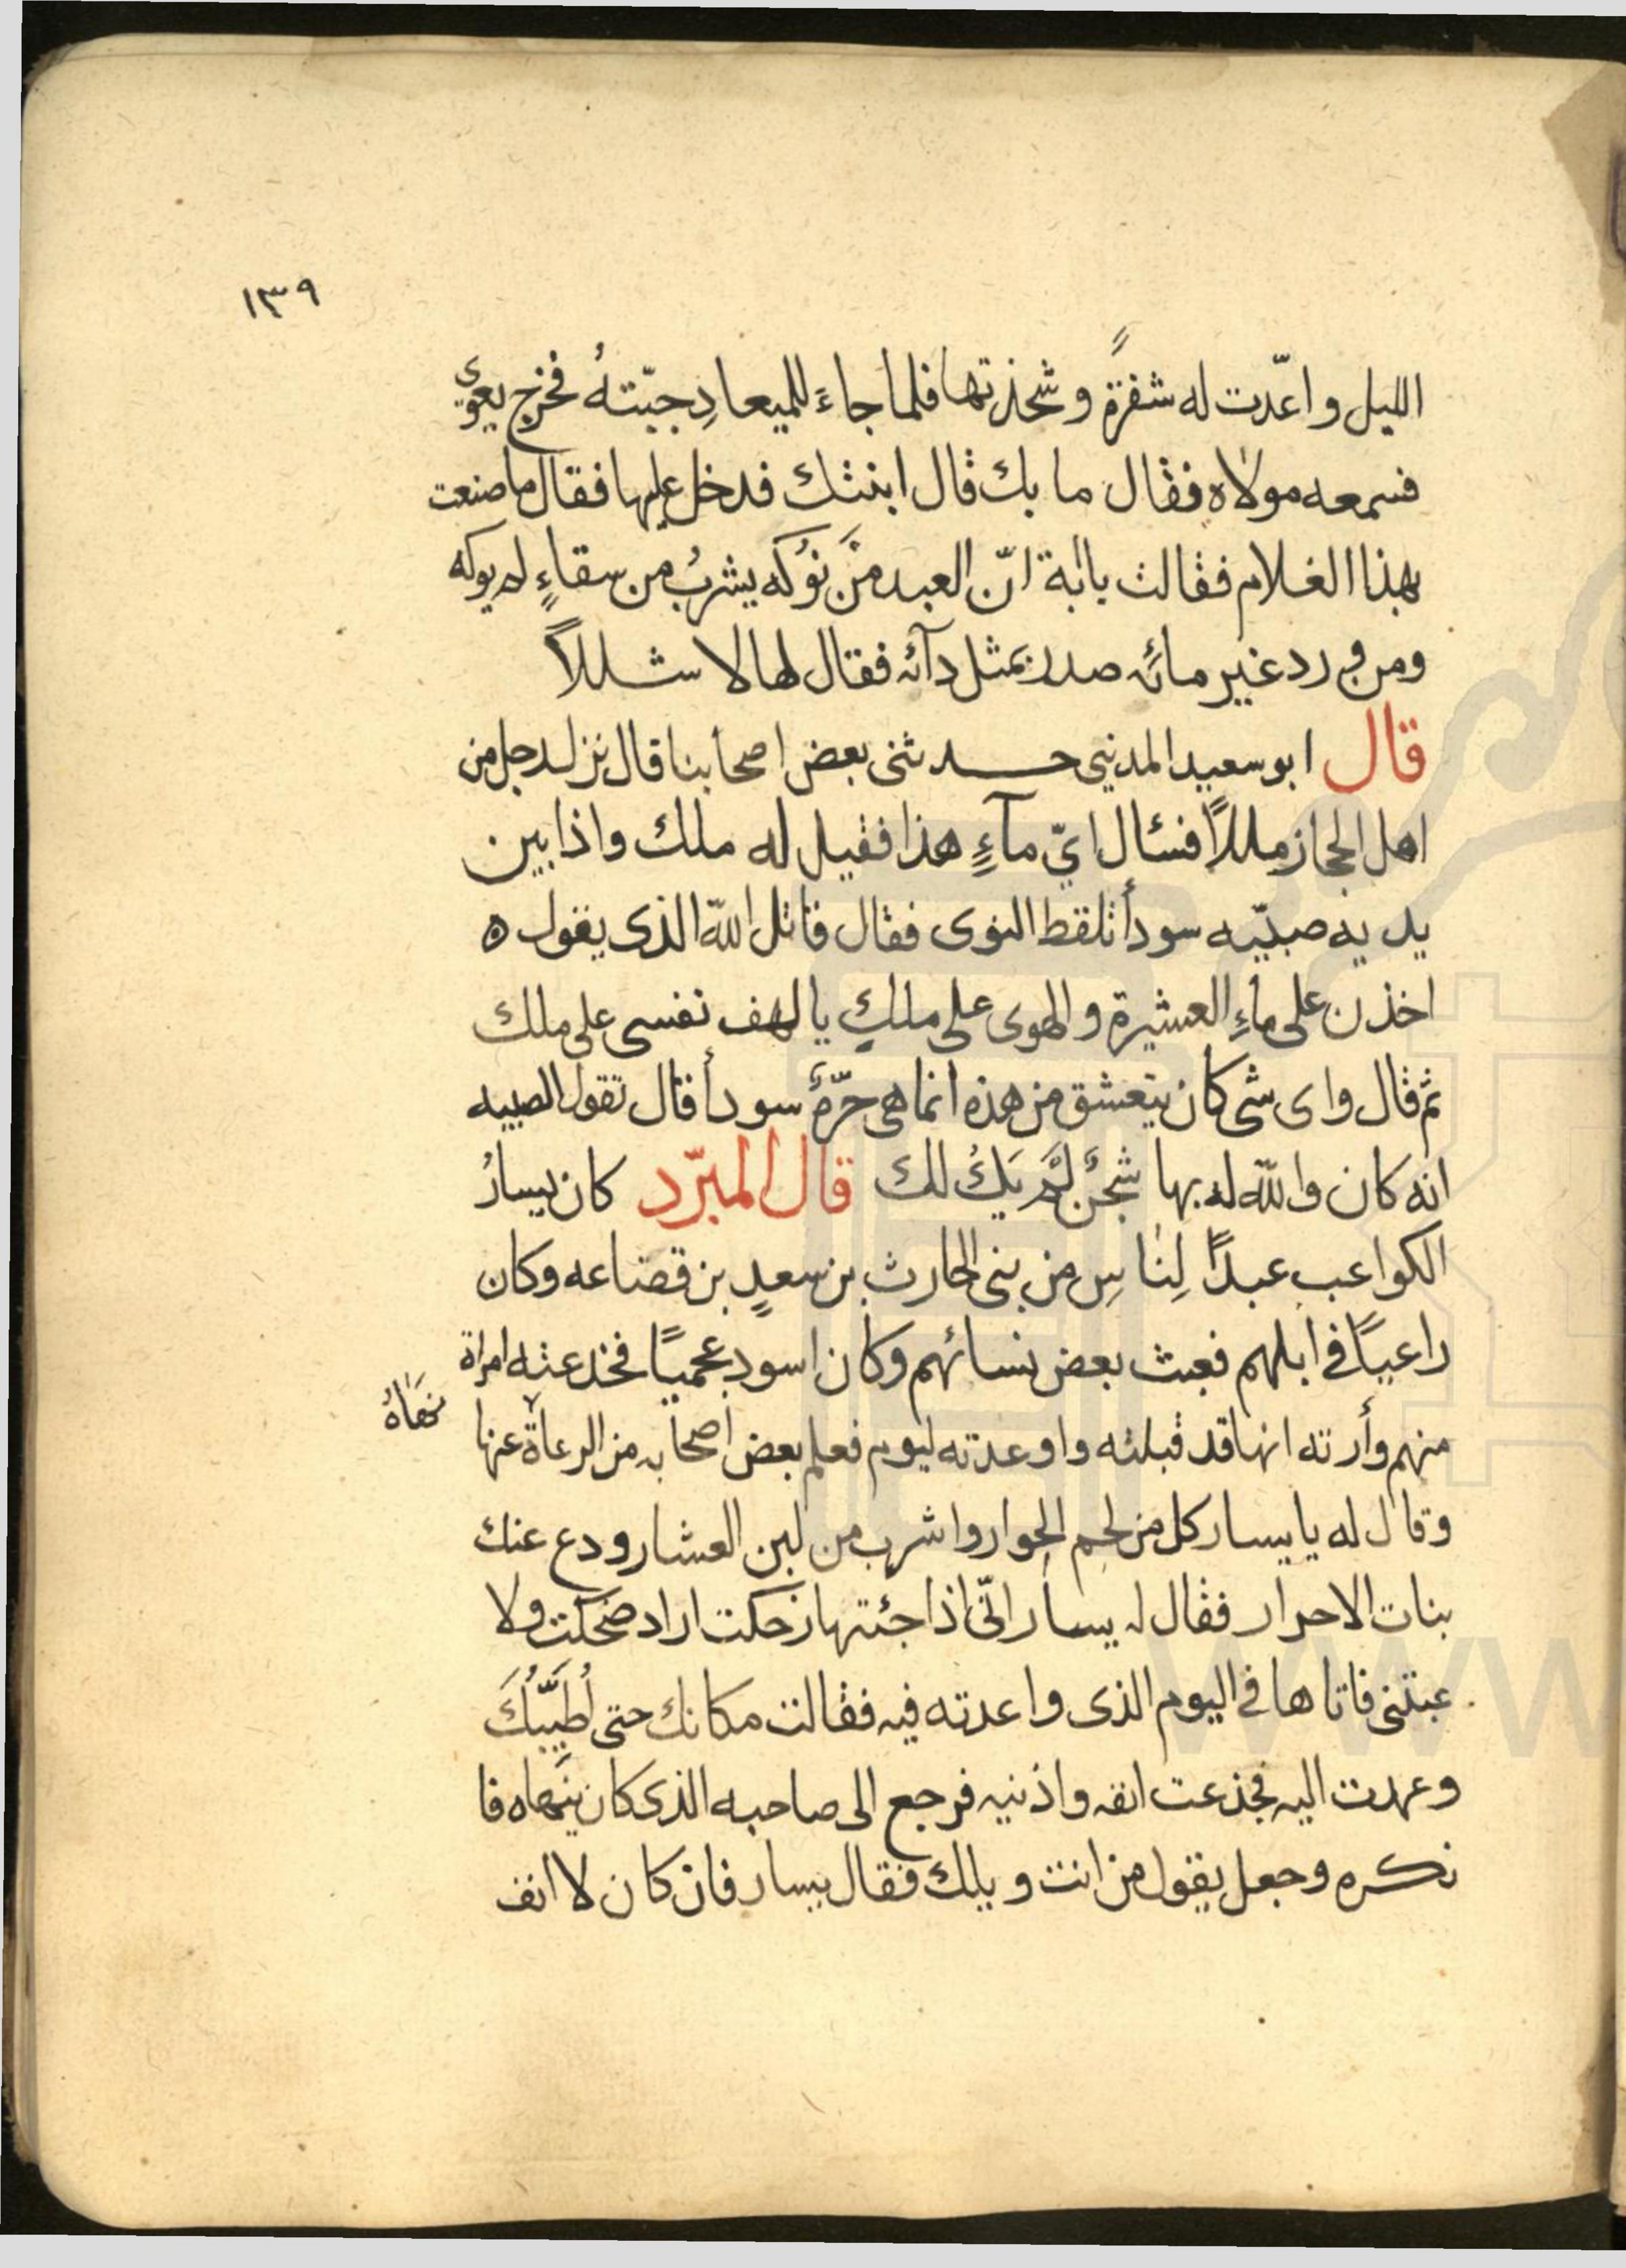 ١٣٩
الليل واعدّت له شفرةً وشحذتها فلما جاءَ للميعادِ جبّتهُ فخرج يعوى
فسمعه مولاه فقال ما بك قال ابنتك فدخل عليها فقال ما صنعت
بهذا الغلام فقالت يا ابة انّ العبد منْ نوْكه يشربُ من سقاءٍ لم يوكه
ومن ورد غير مائه صدر بمثل دآئه فقال لها لا شللاً
قال ابو سعيد المدينى حدثنى بعض اصحابنا قال نزل رجل من
اهل الحجاز مللاً فسئال ايّ مآءٍ هذا فقيل له ملك واذا بين
يديه صبيّه سودأ تلقط النوى فقال قاتل اللّه الذى يقول ه
اخذن على ماءِ العشيرة والهوى على مللٍ يا لهف نفسى على ملك
ثم قال واى شى كان يتعشق من هذه انما هى حرّةٌ سودأ قال تقول الصبيه
انه كان واللّه له بها شجنٌ لمْ يَكُ لك قال المبرّد كان يسارُ
الكواعب عبداً لِناسٍ من بنى الحارث بن سعدٍ بن قضاعه وكان
راعياً فى ابلهم فعبث بعض نسائهم وكان اسود عجمياً فخدعته امراة
منهم وأرته انها قد قبلته واوعدته ليوم فعلم بعض اصحابه من الرعاة عنها
نهَاهُ
وقال له يا يسار كل من لحم الحوار واشرب من لبن العشار ودع عنك
بنات الاحرار فقال له يسار انّى اذا جئتها زحكت اراد ضحكت ولا
عبتنى فاتاها فى اليوم الذى واعدته فيه فقالت مكانك حتى اُطَيّبُكَ
وعهدت اليه فجذعت انفه واذنيه فرجع الى صاحبه الذى كان ينهاه فا
نكره وجعل يقول من انت ويلك فقال يسار فان كان لا انف